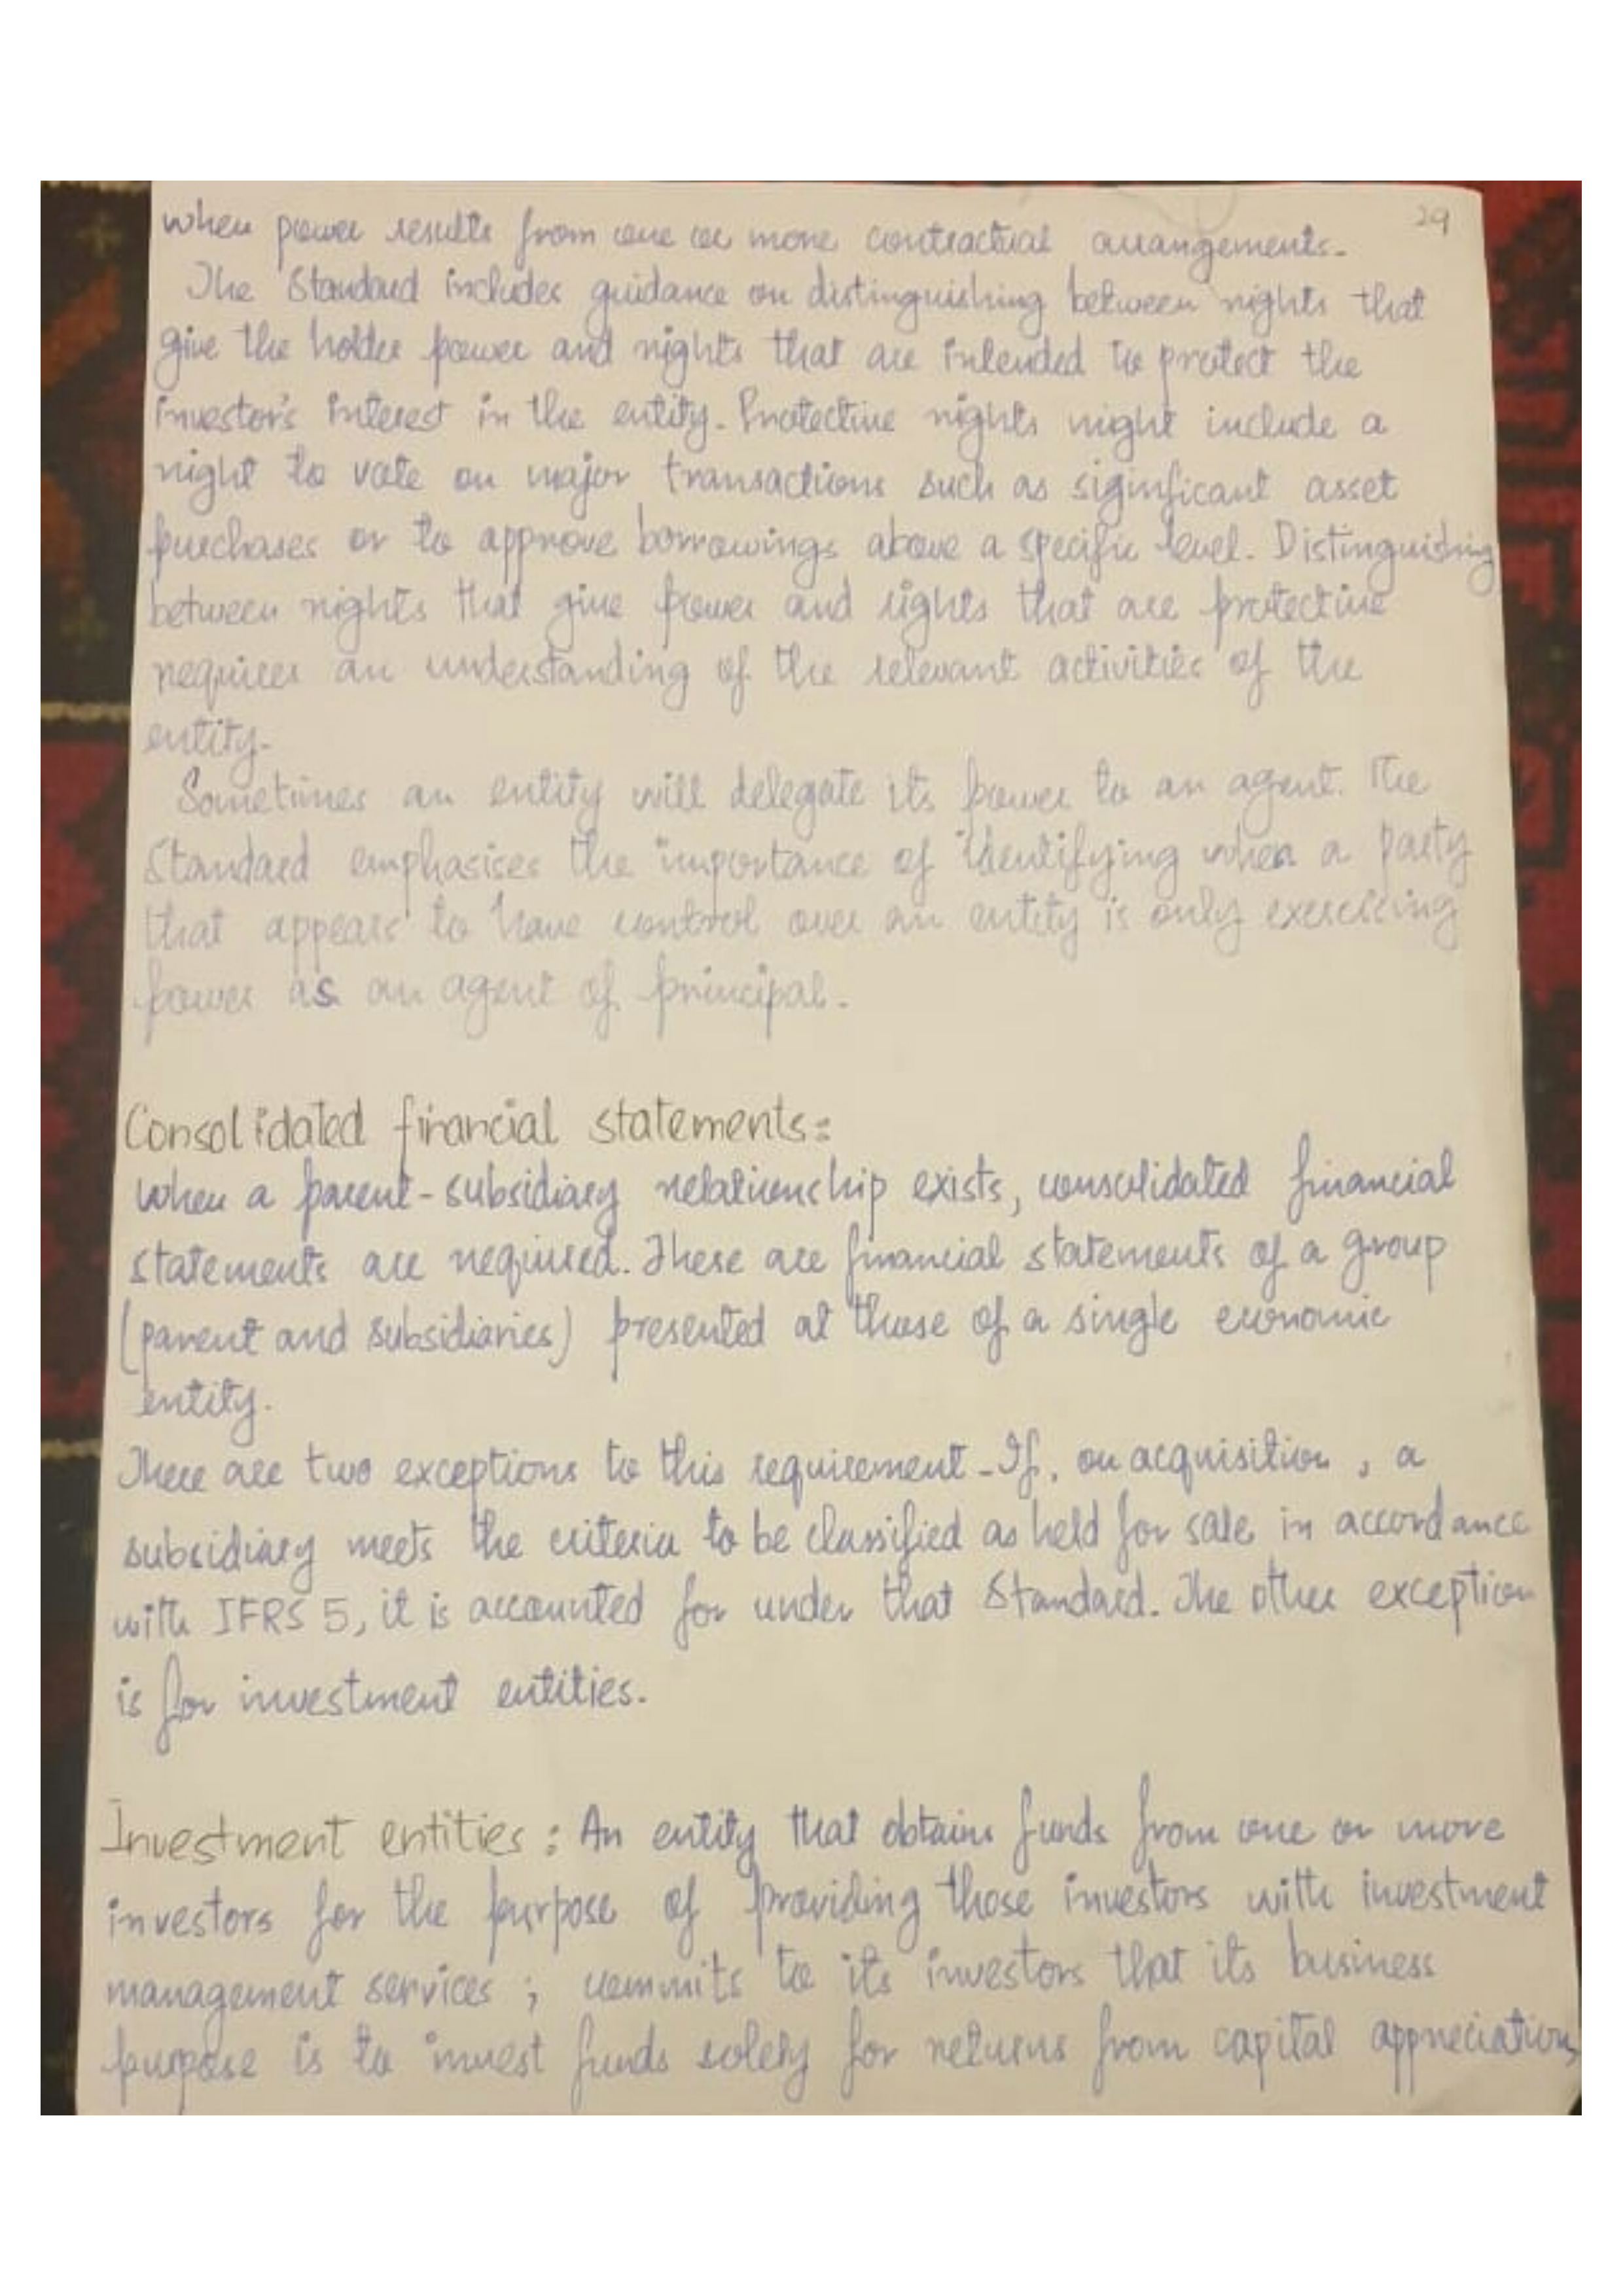 29
when power results from one or more contractual arrangements.
The Standard includes guidance on distinguishing between rights that
give the holder power and rights that are intended to protect the
investor's interest in the entity. Protective rights might include a
right to vote on major transactions such as siginficant asset
purchases or to approve borrowings above a specific level. Distinguishing
between rights that give power and rights that are protective
requires an understanding of the relevant activities of the
entity.
Sometimes an entity will delegate its power to an agent. The
Standard emphasises the importance of identifying when a party
that appears to have control over an entity is only exercising
power as an agent of principal.
Consolidated financial statements:
When a parent-subsidiary relationship exists, consolidated financial
statements are required. These are financial statements of a group
(parent and subsidiaries) presented at those of a single economic
entity.
There are two exceptions to this requirement. If, on acquisition, a
subsidiary meets the criteria to be classified as held for sale in accordance
with IFRS 5, it is accounted for under that Standard. The other exception
is for investment entities.
Investment entities: An entity that obtains funds from one or more
investors for the purpose of providing those investors with investment
management services; commits to its investors that its business
purpose is to invest funds solely for returns from capital appreciation,